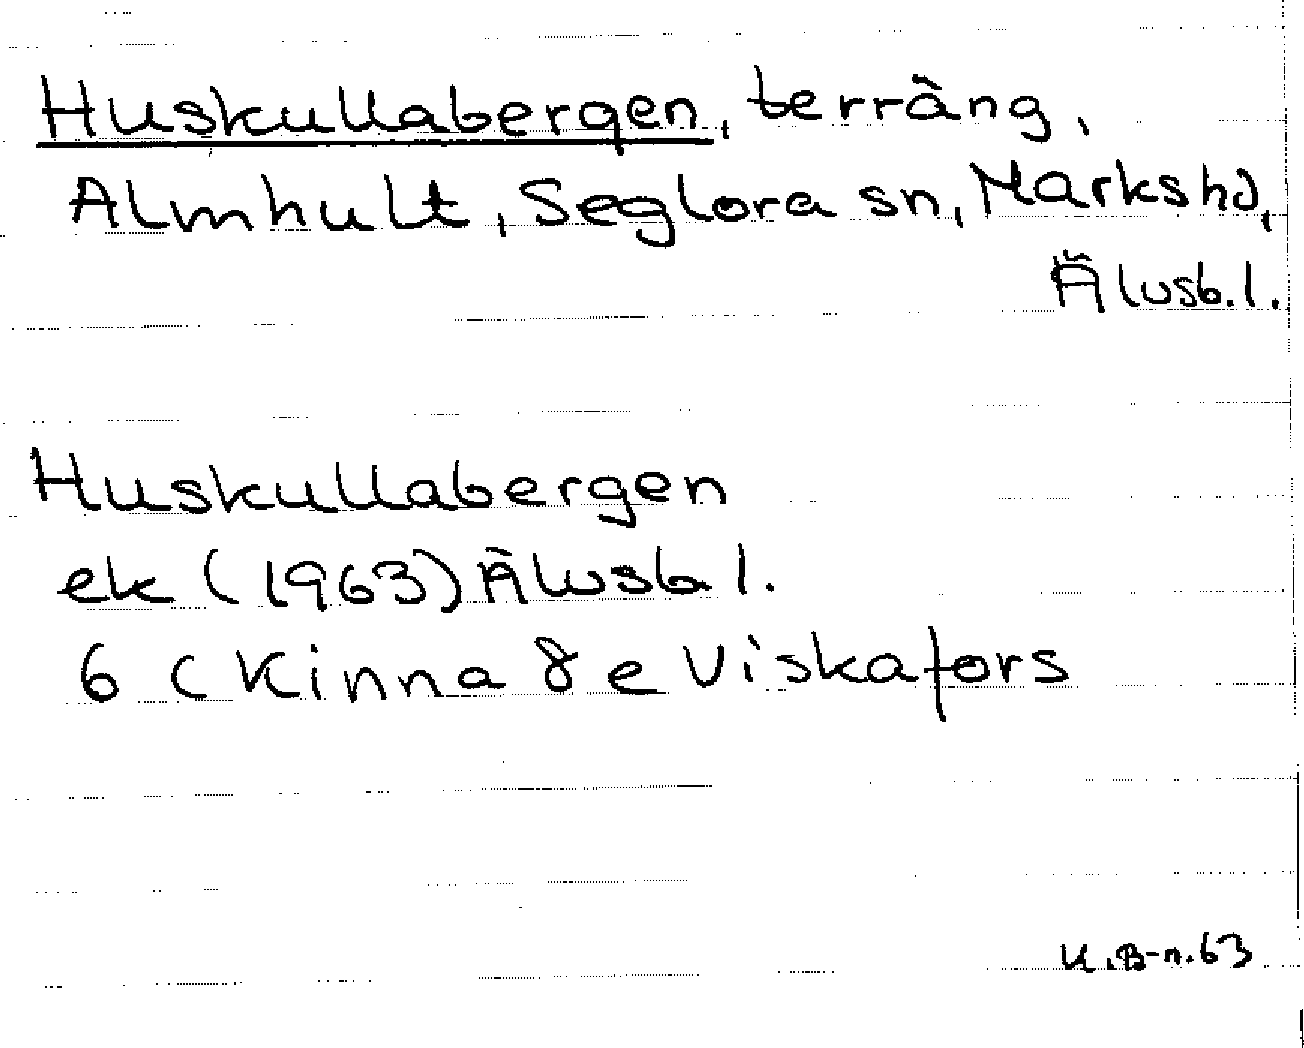 Huskullabergen, terräng,
Almhult, Seglora sn, Marks hd,
Älvsb. l.
Huskullabergen
ek (1963) Älvsb l.
6 c Kinna 8 e Viskafors
K.B-n.63